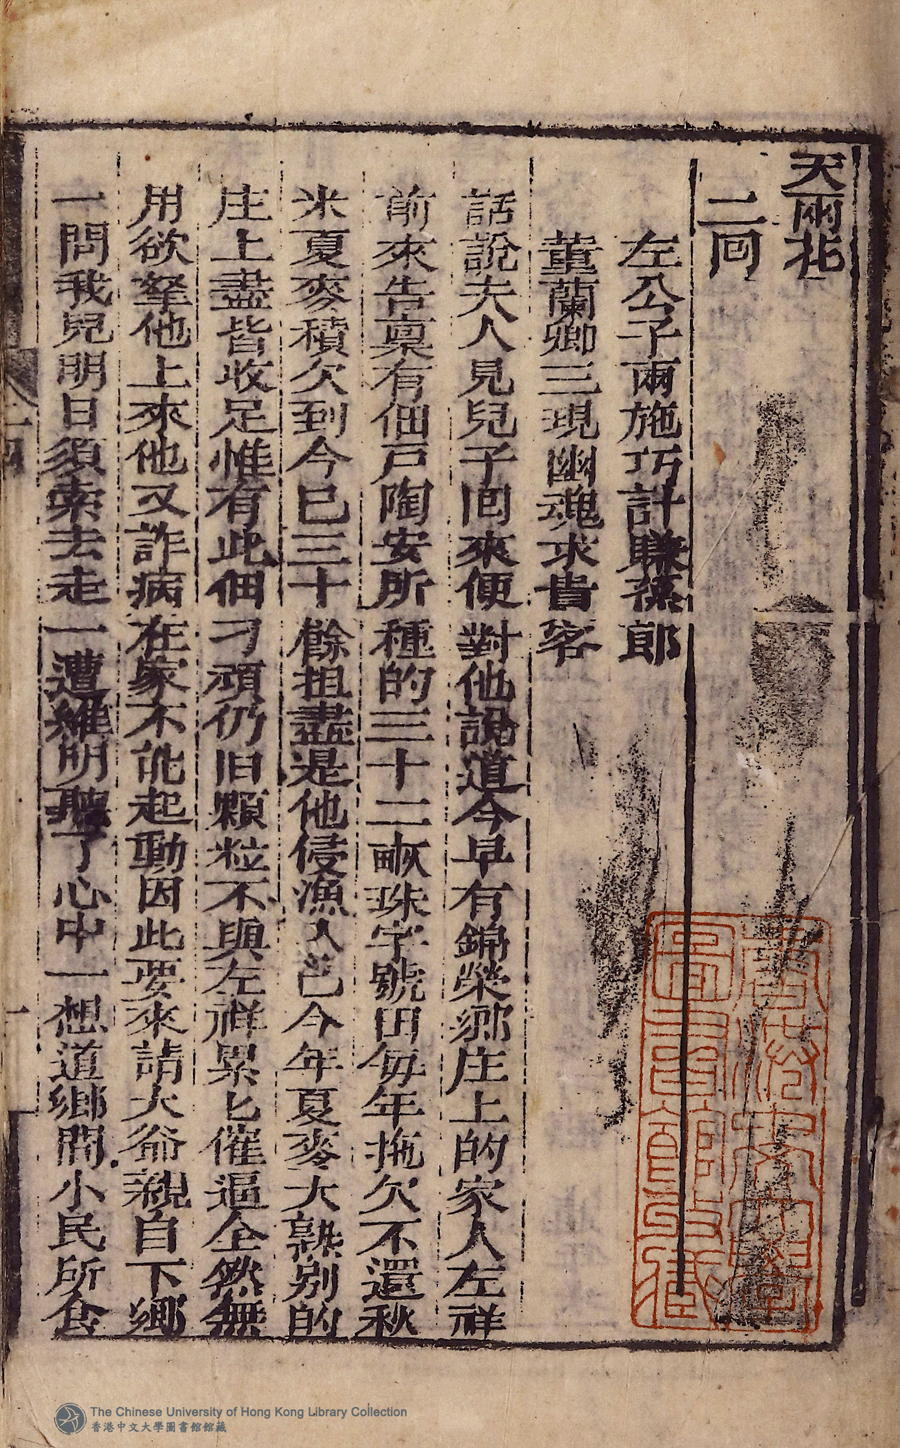 天雨花
二囘
左公子兩施巧計賺蕉郎
董蘭卿三現幽魂求貴客
話說夫人見兒子囘來便對他說道今早有錦榮鄉庄上的家人左祥
前來告稟有佃戸陶安所種的三十二畝珠字號田毎年拖欠不還秋
米夏麥積欠到今已三十餘担盡是他侵漁入己今年夏麥大熟别的
庄上盡皆收足惟有此佃刁頑仍旧顆粒不與左祥累匕催逼全然無
用欲拏他上來他又詐病在家不能起動因此要來請大爺親自下鄉
一問我兒明日須索去走一遭維明聽了心中一想道鄉間小民所食
The Chinese University of Hong Kong Library Collection
香港中文大學圖書館館藏